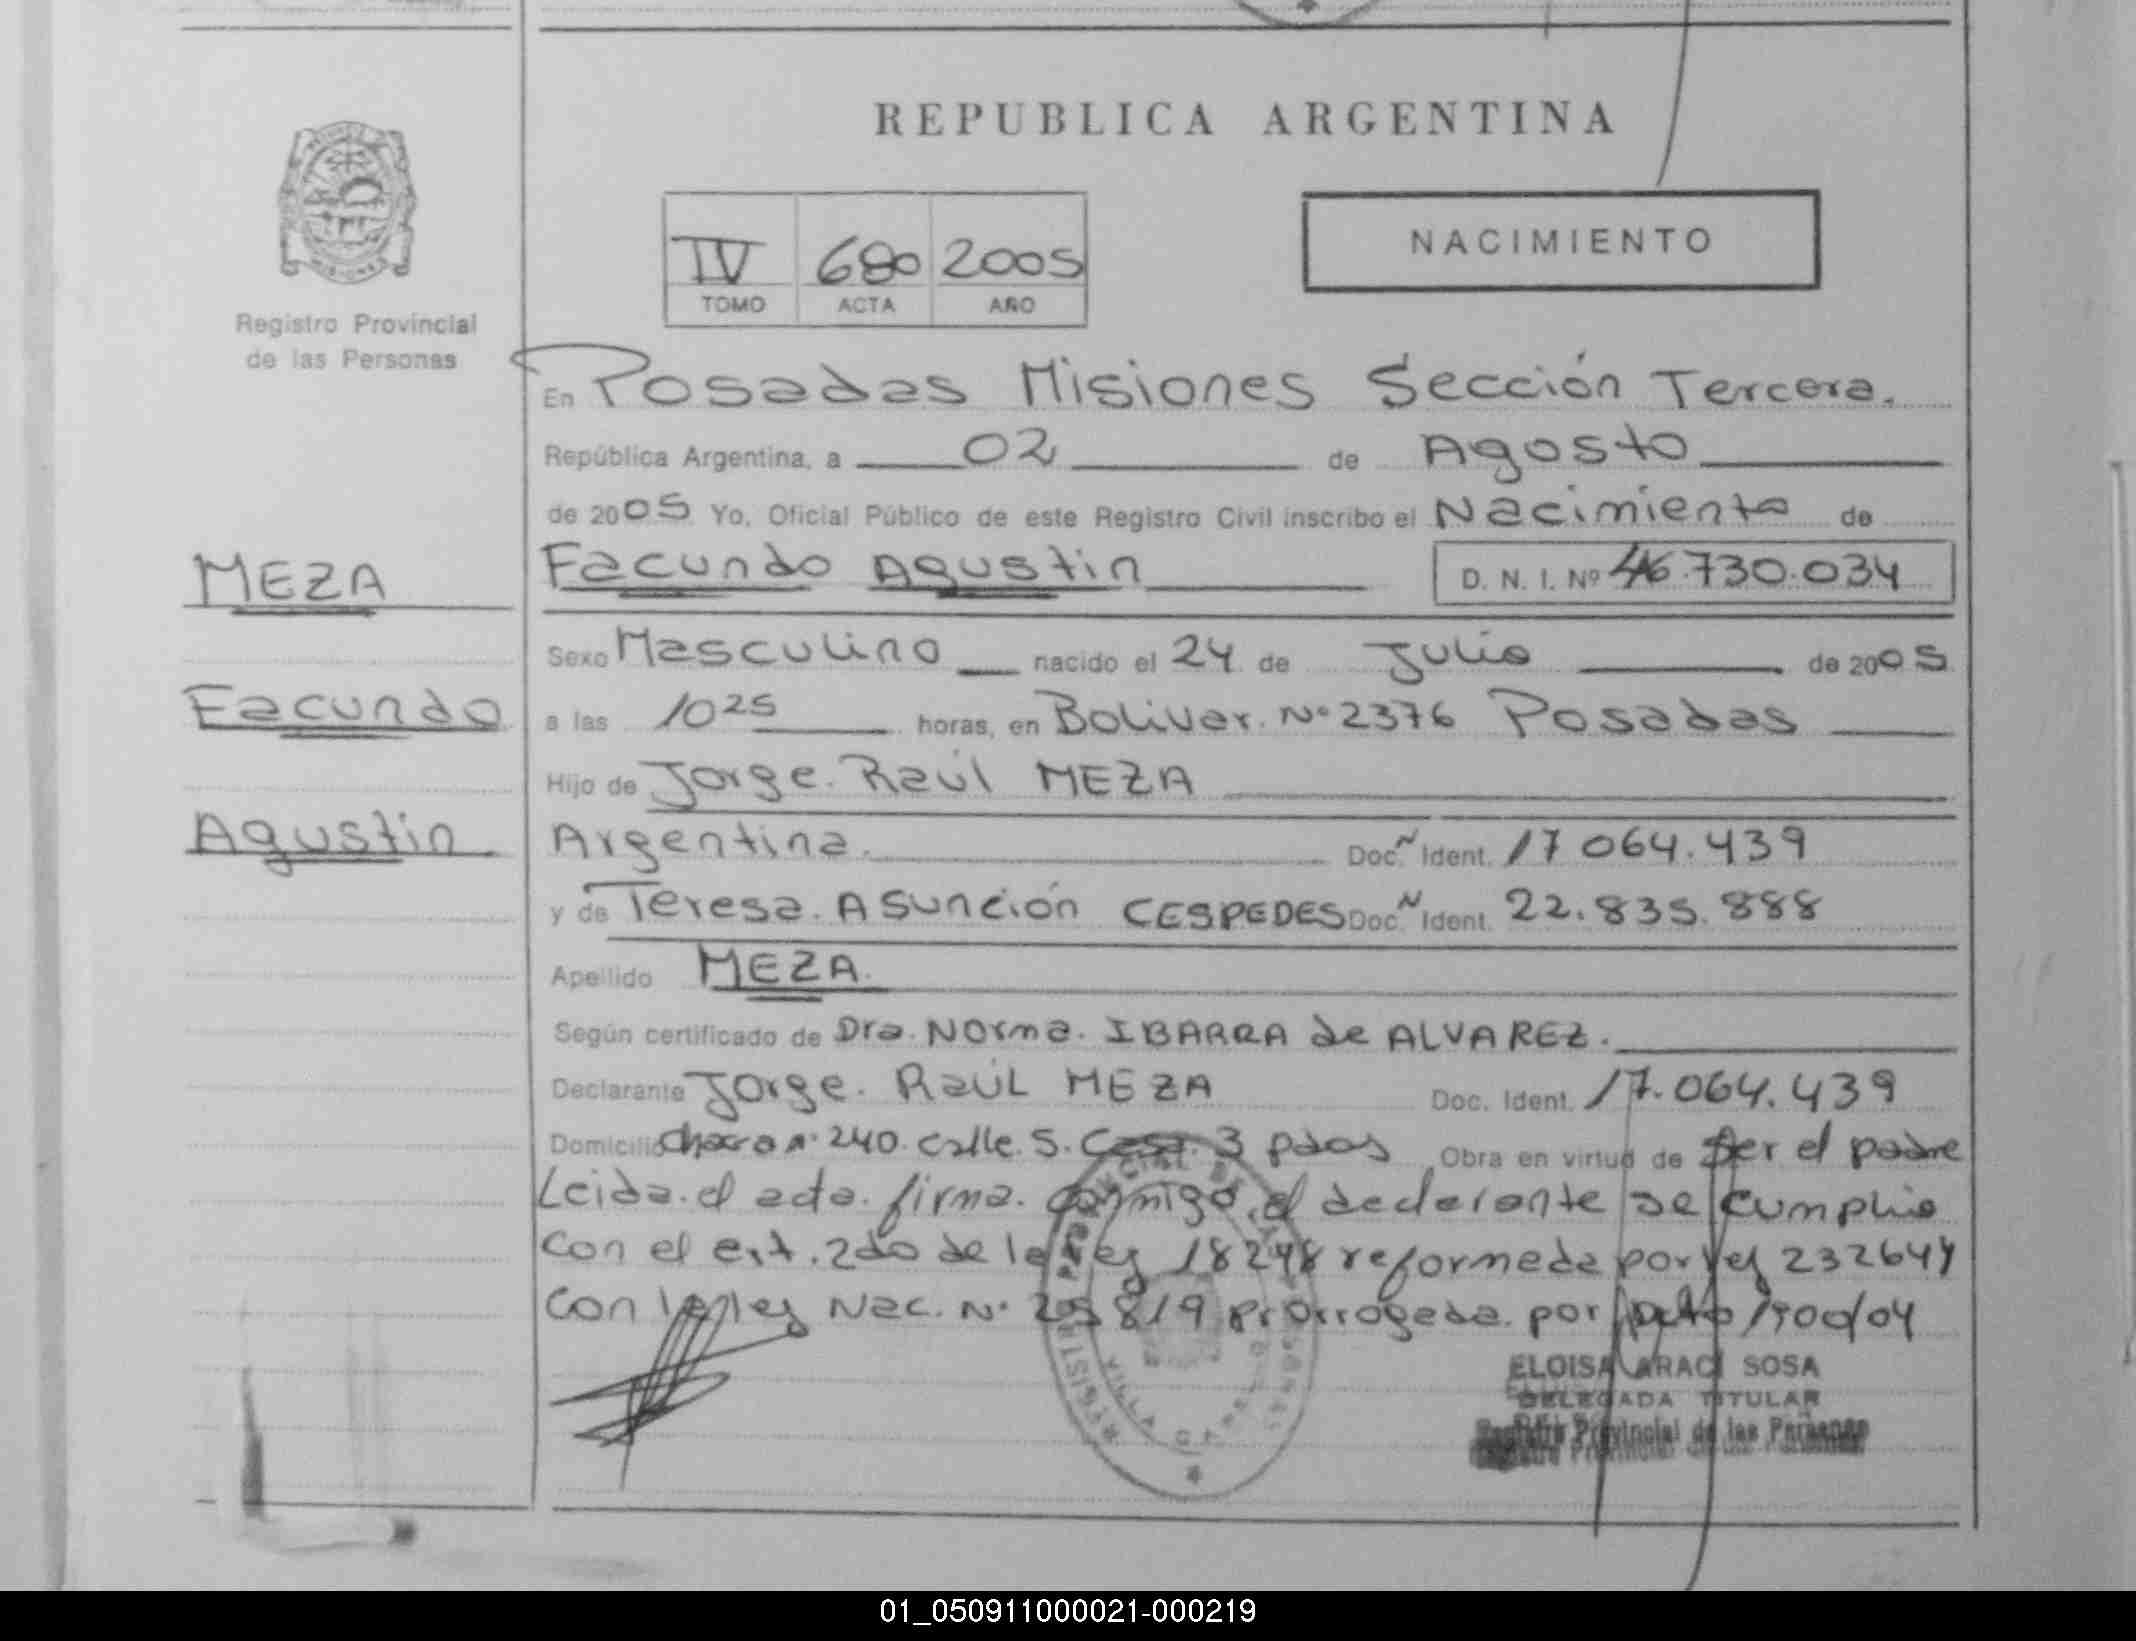 REPUBLICA ARGENTINA
NACIMIENTO
IV 680 2005
TOMO ACTA AÑO
Registro Provincial
de las Personas
En Posadas Misiones Sección Tercera.
República Argentina, a 02 de Agosto
de 2005 Yo, Oficial Público de este Registro Civil inscribo el Nacimiento de
MEZA
Facundo Agustin D. N. I. Nº 46.730.034
Sexo Masculino nacido el 24 de Julio de 2005
Facundo
a las 10 25 horas, en Bolivar. Nº 2376 Posadas
Hijo de Jorge. Raúl MEZA
Agustin
Argentina. Doc. Ident. 17 064.439
y de Teresa. Asunción CESPEDES Doc. Ident. 22.835.888
Apellido MEZA.
Según certificado de Dra. Norma. IBARRA de ALVAREZ.
Declarante Jorge. Raúl MEZA Doc. Ident. 17.064.439
Domicilio Chacra Nº 240. calle. S. Casa. 3 pdas Obra en virtud de Ser el padre
Leida. el acta. firma. conmigo, el declarante se cumplio
con el art. 2do de la ley 18248 reformada por ley 23264 y
con la ley Nac. Nº 25819 prorrogada. por 1900/04
ELOISA ARACI SOSA
DELEGADA TITULAR
Registro Provincial de las Personas
VILLA
01_050911000021-000219